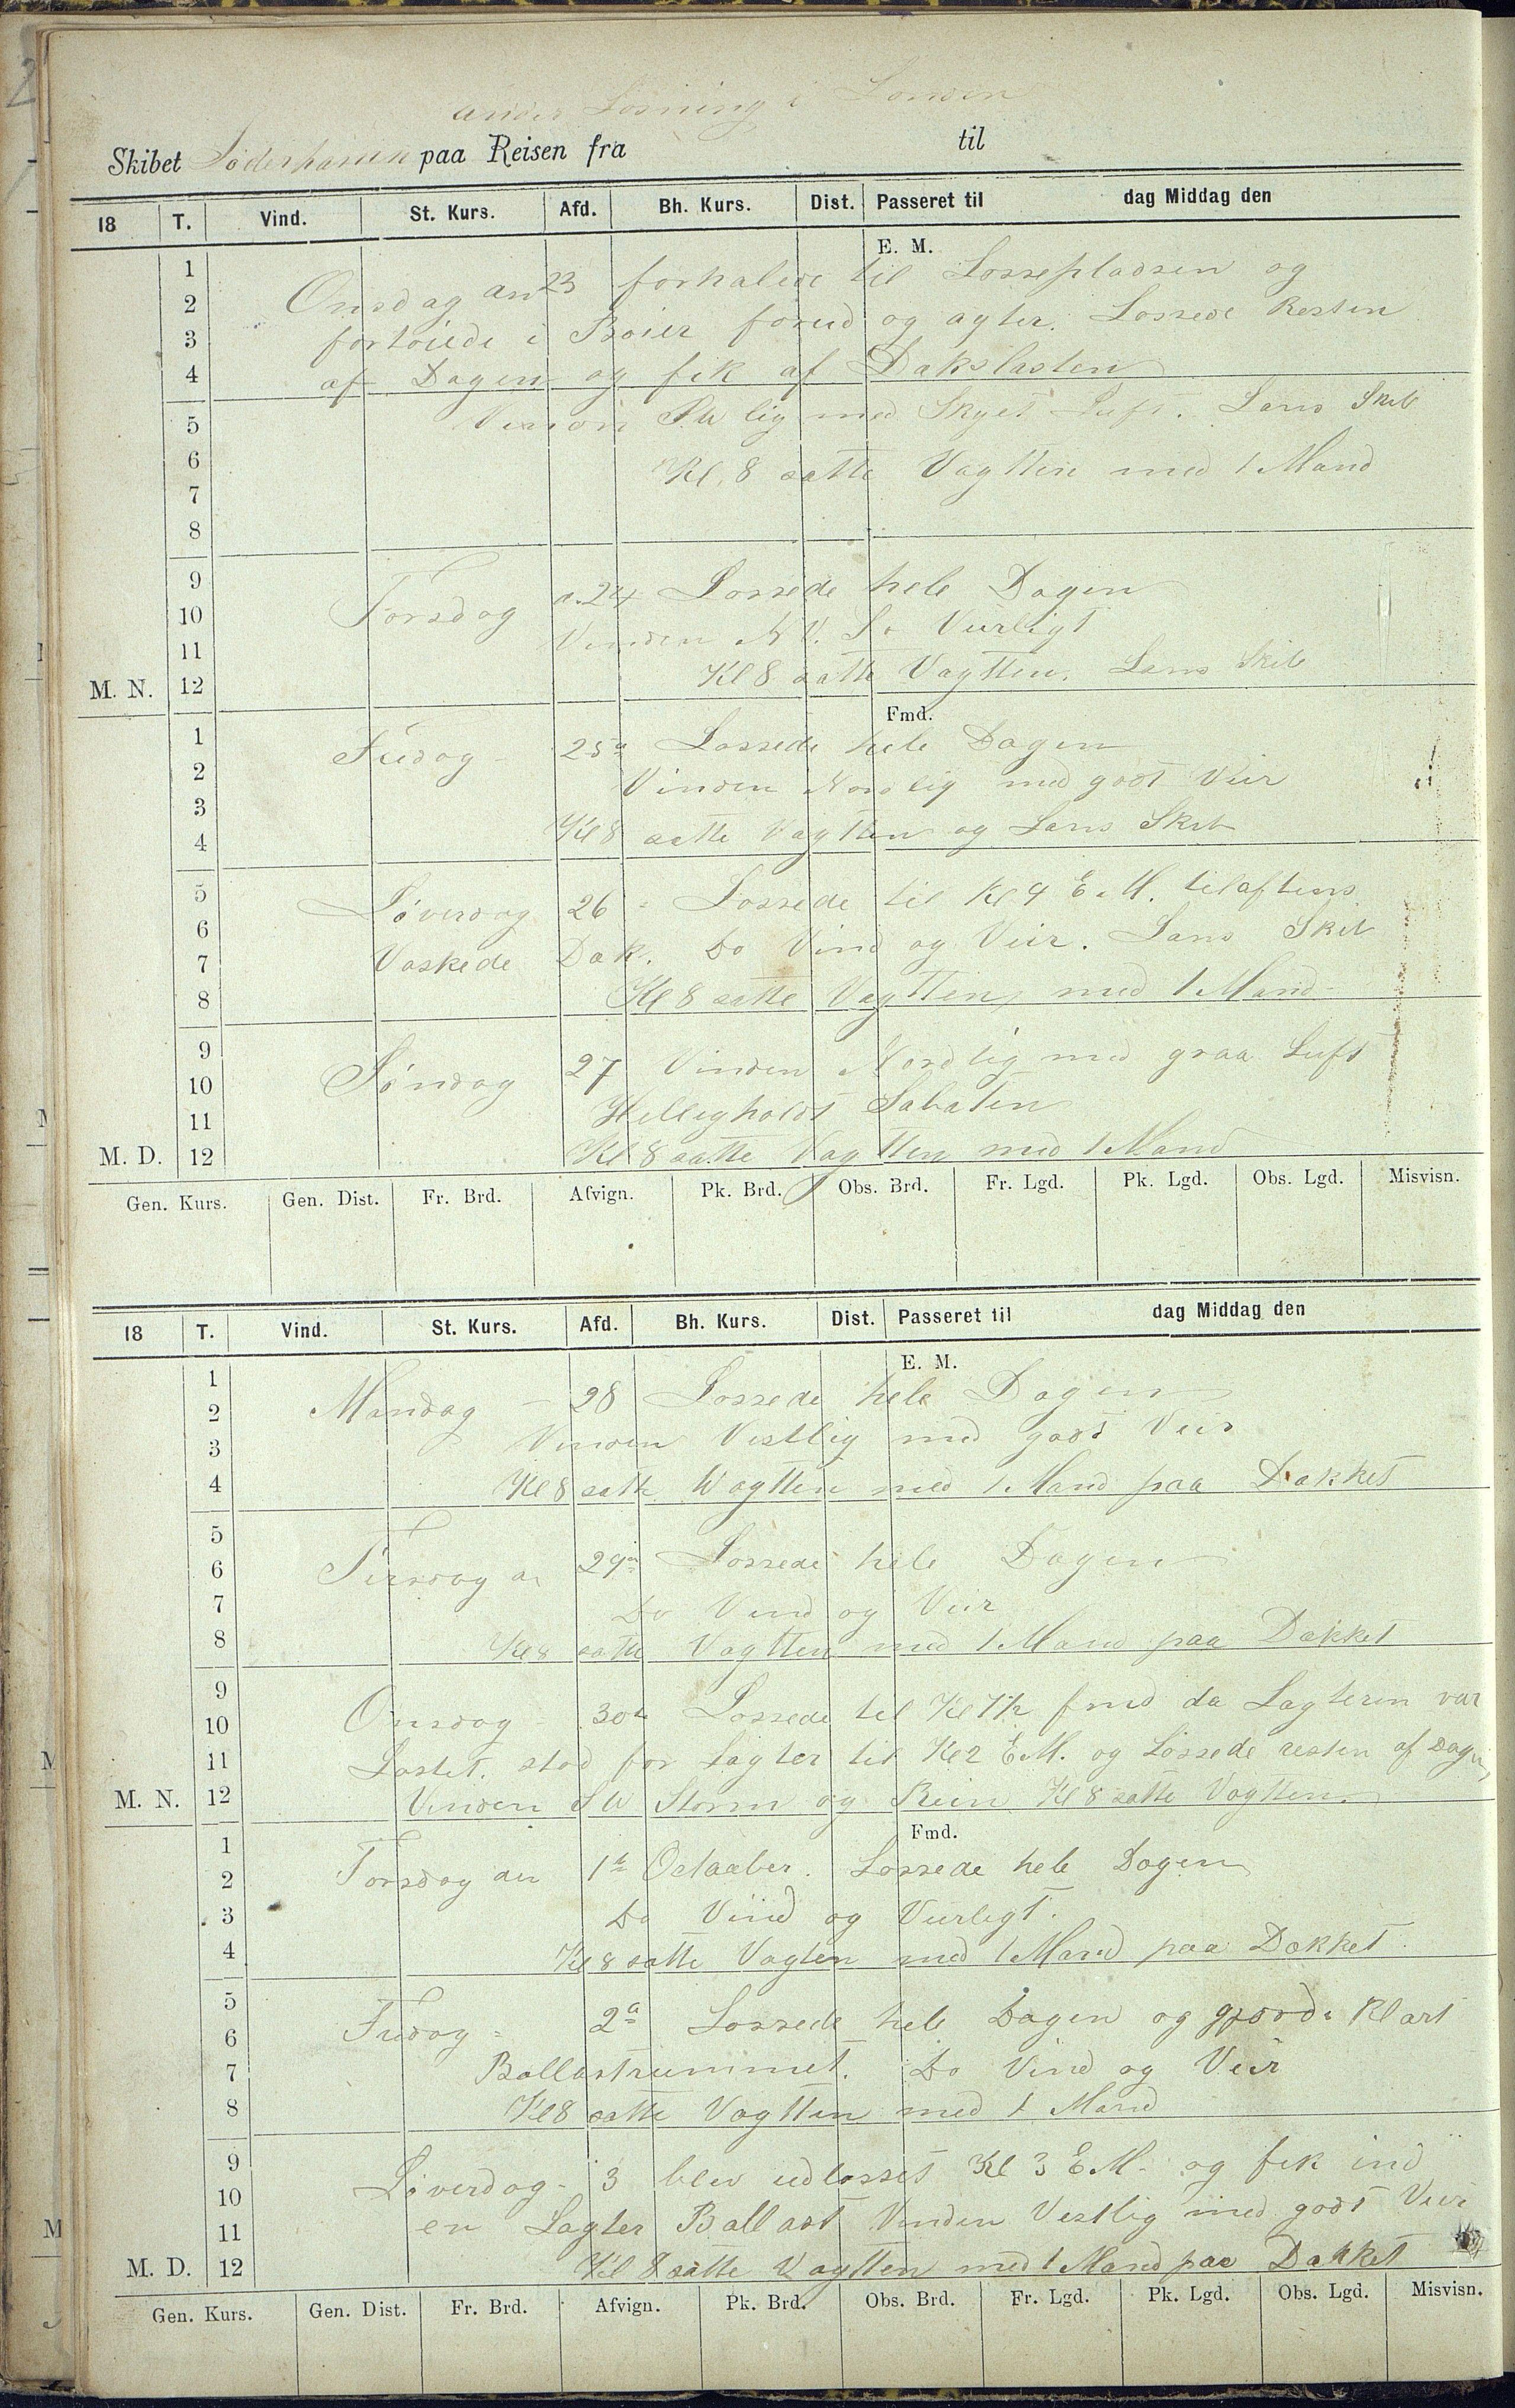 under Losning i London
Skibet Söderhamn paa Reisen fra til
18 T. Vind. St. Kurs. Afd. Bh. Kurs. Dist. Passeret til dag Middag den
E. M.
1
2
3
4
5
6
7
8
9
10
11
M. N. 12
Onsdag an 23 forhalede til Lossepladsen og
fortöiede i Boier forud og agter. Lossede Resten
af Dagen og fik af Dakslasten
Vinden SW lig med Skyet Luft. Lens Skib
Kl. 8 satte Vagtten med 1 Mand
Torsdag a. 24 Lossede hele Dagen
Vinden N V. Do Veirligt
Kl 8 satte Vagtten. Lens Skib
Fmd.
1
2
3
4
5
6
7
8
9
10
11
M. D. 12
Fredag - 25a Lossede hele Dagen
Vinden Nordlig med godt Veir
Kl 8 satte Vagtten og Lens Skib
Löverdag 26 - Lossede til Kl 4 E.M. tilaftens
Vaskede Dæk. Do Vind og Veir. Lens Skib
Kl 8 satte Vagtten med 1 Mand
Söndag 27 Vinden Nordlig med graa Luft
Helligholdt Sabaten
Kl 8 satte Vagtten med 1 Mand
Gen. Kurs. Gen. Dist. Fr. Brd. Afvign. Pk. Brd. Obs. Brd. Fr. Lgd. Pk. Lgd. Obs. Lgd. Misvisn.
18 T. Vind. St. Kurs. Afd. Bh. Kurs. Dist. Passeret til dag Middag den
E. M.
1
2
3
4
5
6
7
8
9
10
11
M. N. 12
Mandag - 28 Lossede hele Dagen
Vinden Vestlig med godt Veir
Kl 8 satte Wagtten med 1 Mand paa Dækket
Tirsdag a. 29a Lossede hele Dagen
Do Vind og Veir
Kl 8 satte Vagtten med 1 Mand paa Dækket
Onsdag - 30te Lossede til Kl fmd da Lagteren var
Lastet. stod for Lagter til Kl 2 E.M. og Lossede resten af Dagen
Vinden SW Storm og Rein Kl 8 satte Vagtten.
Fmd.
1
2
3
4
5
6
7
8
9
10
11
M. D. 12
Torsdag den 1te Octaaber. Lossede hele Dagen
Do Vind og Veirligt.
Kl 8 satte Vagten med 1 Mand paa Dækket.
Fredag - 2a Lossede hele Dagen og gjorde Klart
Ballastrummet. Do Vind og Veir
Kl 8 satte Vagtten med 1 Mand
Löverdag - 3 blev udlosset Kl 3 E.M. og fik ind
en Lagter Ballast Vinden Vestlig med godt Veir
Kl 8 satte Vagtten med 1 Mand paa Dækket
Gen. Kurs. Gen. Dist. Fr. Brd. Afvign. Pk. Brd. Obs. Brd. Fr. Lgd. Pk. Lgd. Obs. Lgd. Misvisn.